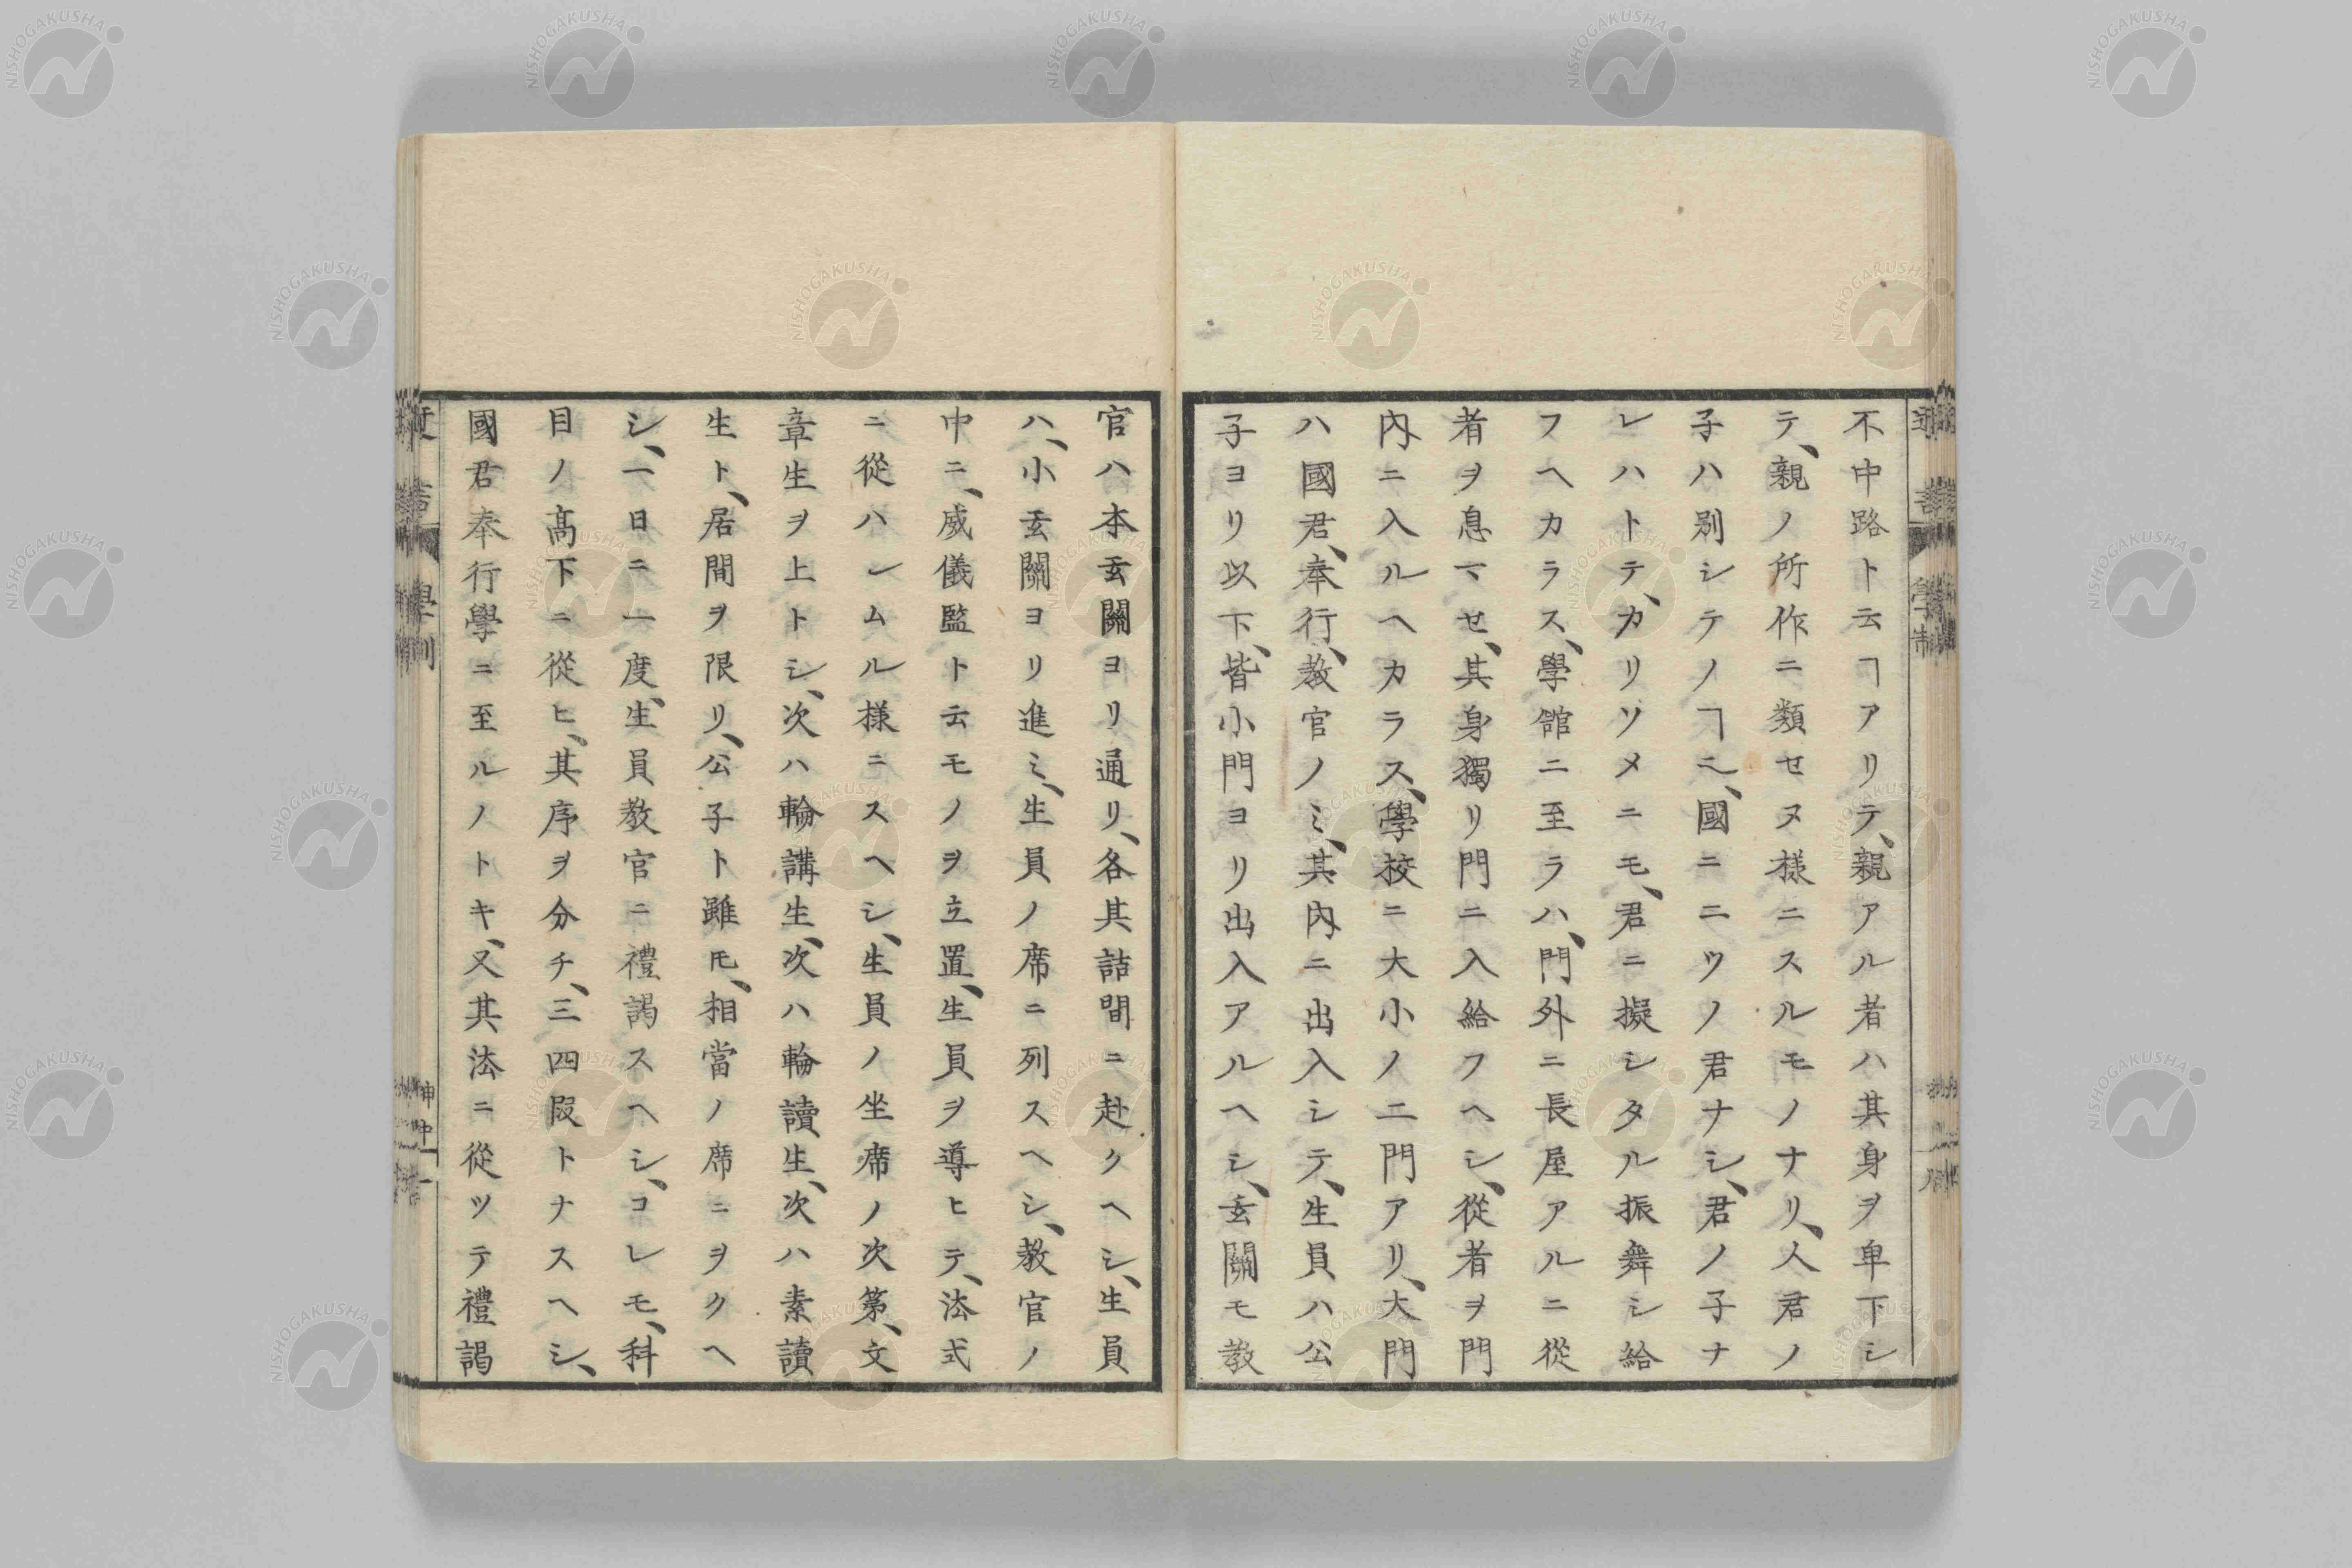 不中路ト云ヿアリテ、親アル者ハ其身ヲ卑下シ
テ、親ノ所作ニ類セヌ様ニスルモノナリ、人君ノ
子ハ別シテノヿニ、國ニ二ツノ君ナシ、君ノ子ナ
レハトテ、カリソメニモ、君ニ擬シタル振舞シ給
フヘカラス、學舘ニ至ラハ、門外ニ長屋アルニ從
者ヲ息マセ、其身獨リ門ニ入給フヘシ、從者ヲ門
內ニ入ルヘカラス、學校ニ大小ノ二門アリ、大門
ハ國君、奉行、教官ノミ、其內ニ出入シテ、生員ハ公
子ヨリ以下、皆小門ヨリ出入アルヘシ、玄關モ教
官ハ本玄關ヨリ通リ、各其詰間ニ赴クヘシ、生員
ハ、小玄關ヨリ進ミ、生員ノ席ニ列スヘシ、教官ノ
中ニ、威儀監ト云モノヲ立置、生員ヲ導ヒテ、法式
ニ從ハシムル様ニスヘシ、生員ノ坐席ノ次第、文
章生ヲ上トシ、次ハ輪講生、次ハ輪讀生、次ハ素讀
生ト、居間ヲ限リ、公子ト雖𪜈、相當ノ席ニヲクヘ
シ、一日ニ一度、生員教官ニ禮謁スヘシ、コレモ、科
目ノ高下ニ從ヒ、其序ヲ分チ、三四段トナスヘシ、
國君奉行學ニ至ルノトキ、又其法ニ從ツテ禮謁